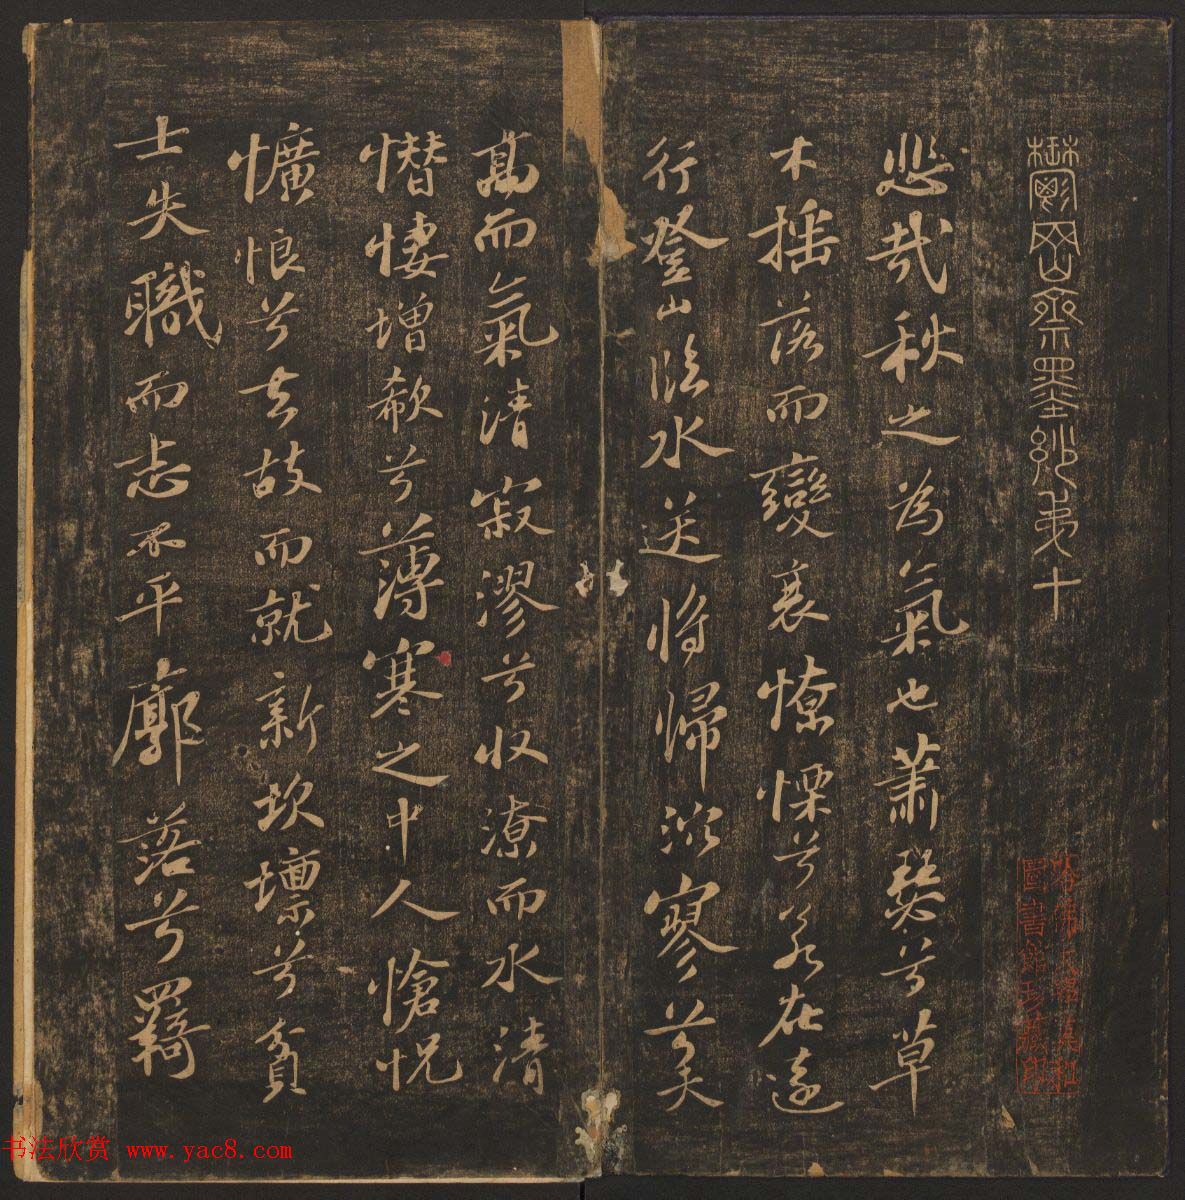 鬱岡齋墨妙弟十
悲哉秋之為氣也蕭瑟兮草
木搖落而變衰憭慄兮若在遠
行登山臨水送將歸泬寥兮天
高而氣清寂漻兮收潦而水清
憯悽增欷兮薄寒之中人愴怳
懭悢兮去故而就新坎壈兮貧
士失職而志不平廓落兮羇
哈佛大學漢和
圖書館珍藏印
书法欣赏 www.yac8.com